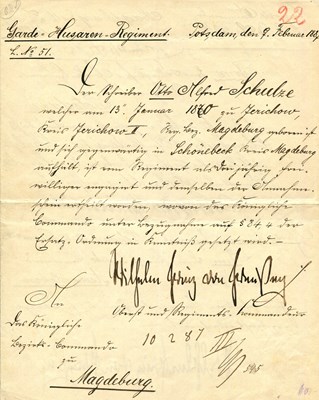 22
Garde-Husaren-Regiment. Potsdam, den 9. Februar 1887
L. No 51.
Der Schreiber Otto Alfred Schulze
welcher am 15. Januar 1870 zu Jerichow,
Kreis Jerichow II, Reg. Bez. Magdeburg geboren ist
und sich gegenwärtig in Schönebeck Kreis Magdeburg
aufhält, ist vom Regiment als Dreijährig Frei-
williger engagirt und demselben der Annahme-
schein ertheilt worden, wovon das Königliche
Commando unter Bezugnahme auf § 84,4 der
Ersatz-Ordnung in Kenntniß gesetzt wird.-
Wilhelm Prinz von Preußen
Oberst und Regiments-Kommandeur
An
das Königliche
Bezirks-Commando
zu
Magdeburg.
10 2 87
III